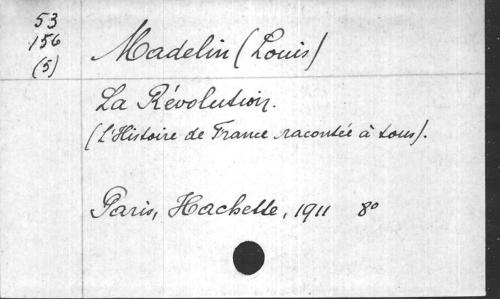 53
156
(5)
Madelin (Louis)
La Révolution.
(L'Histoire de France racontée à tous).
Paris, Hachette, 1911 8º